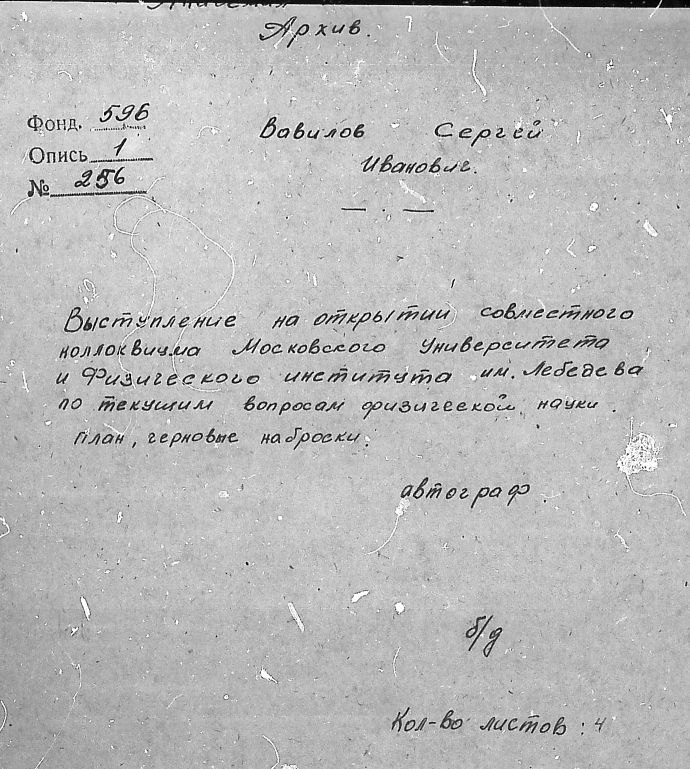 Архив.
Фонд. 596
Опись 1
№ 256
Вавилов Сергей
Иванович.
Выступление на открытии совместного
коллоквиума Московского Университета
и Физического института им. Лебедева
по текущим вопросам физической науки.
План, черновые наброски.
автограф.
б/д
Кол-во листов: 4